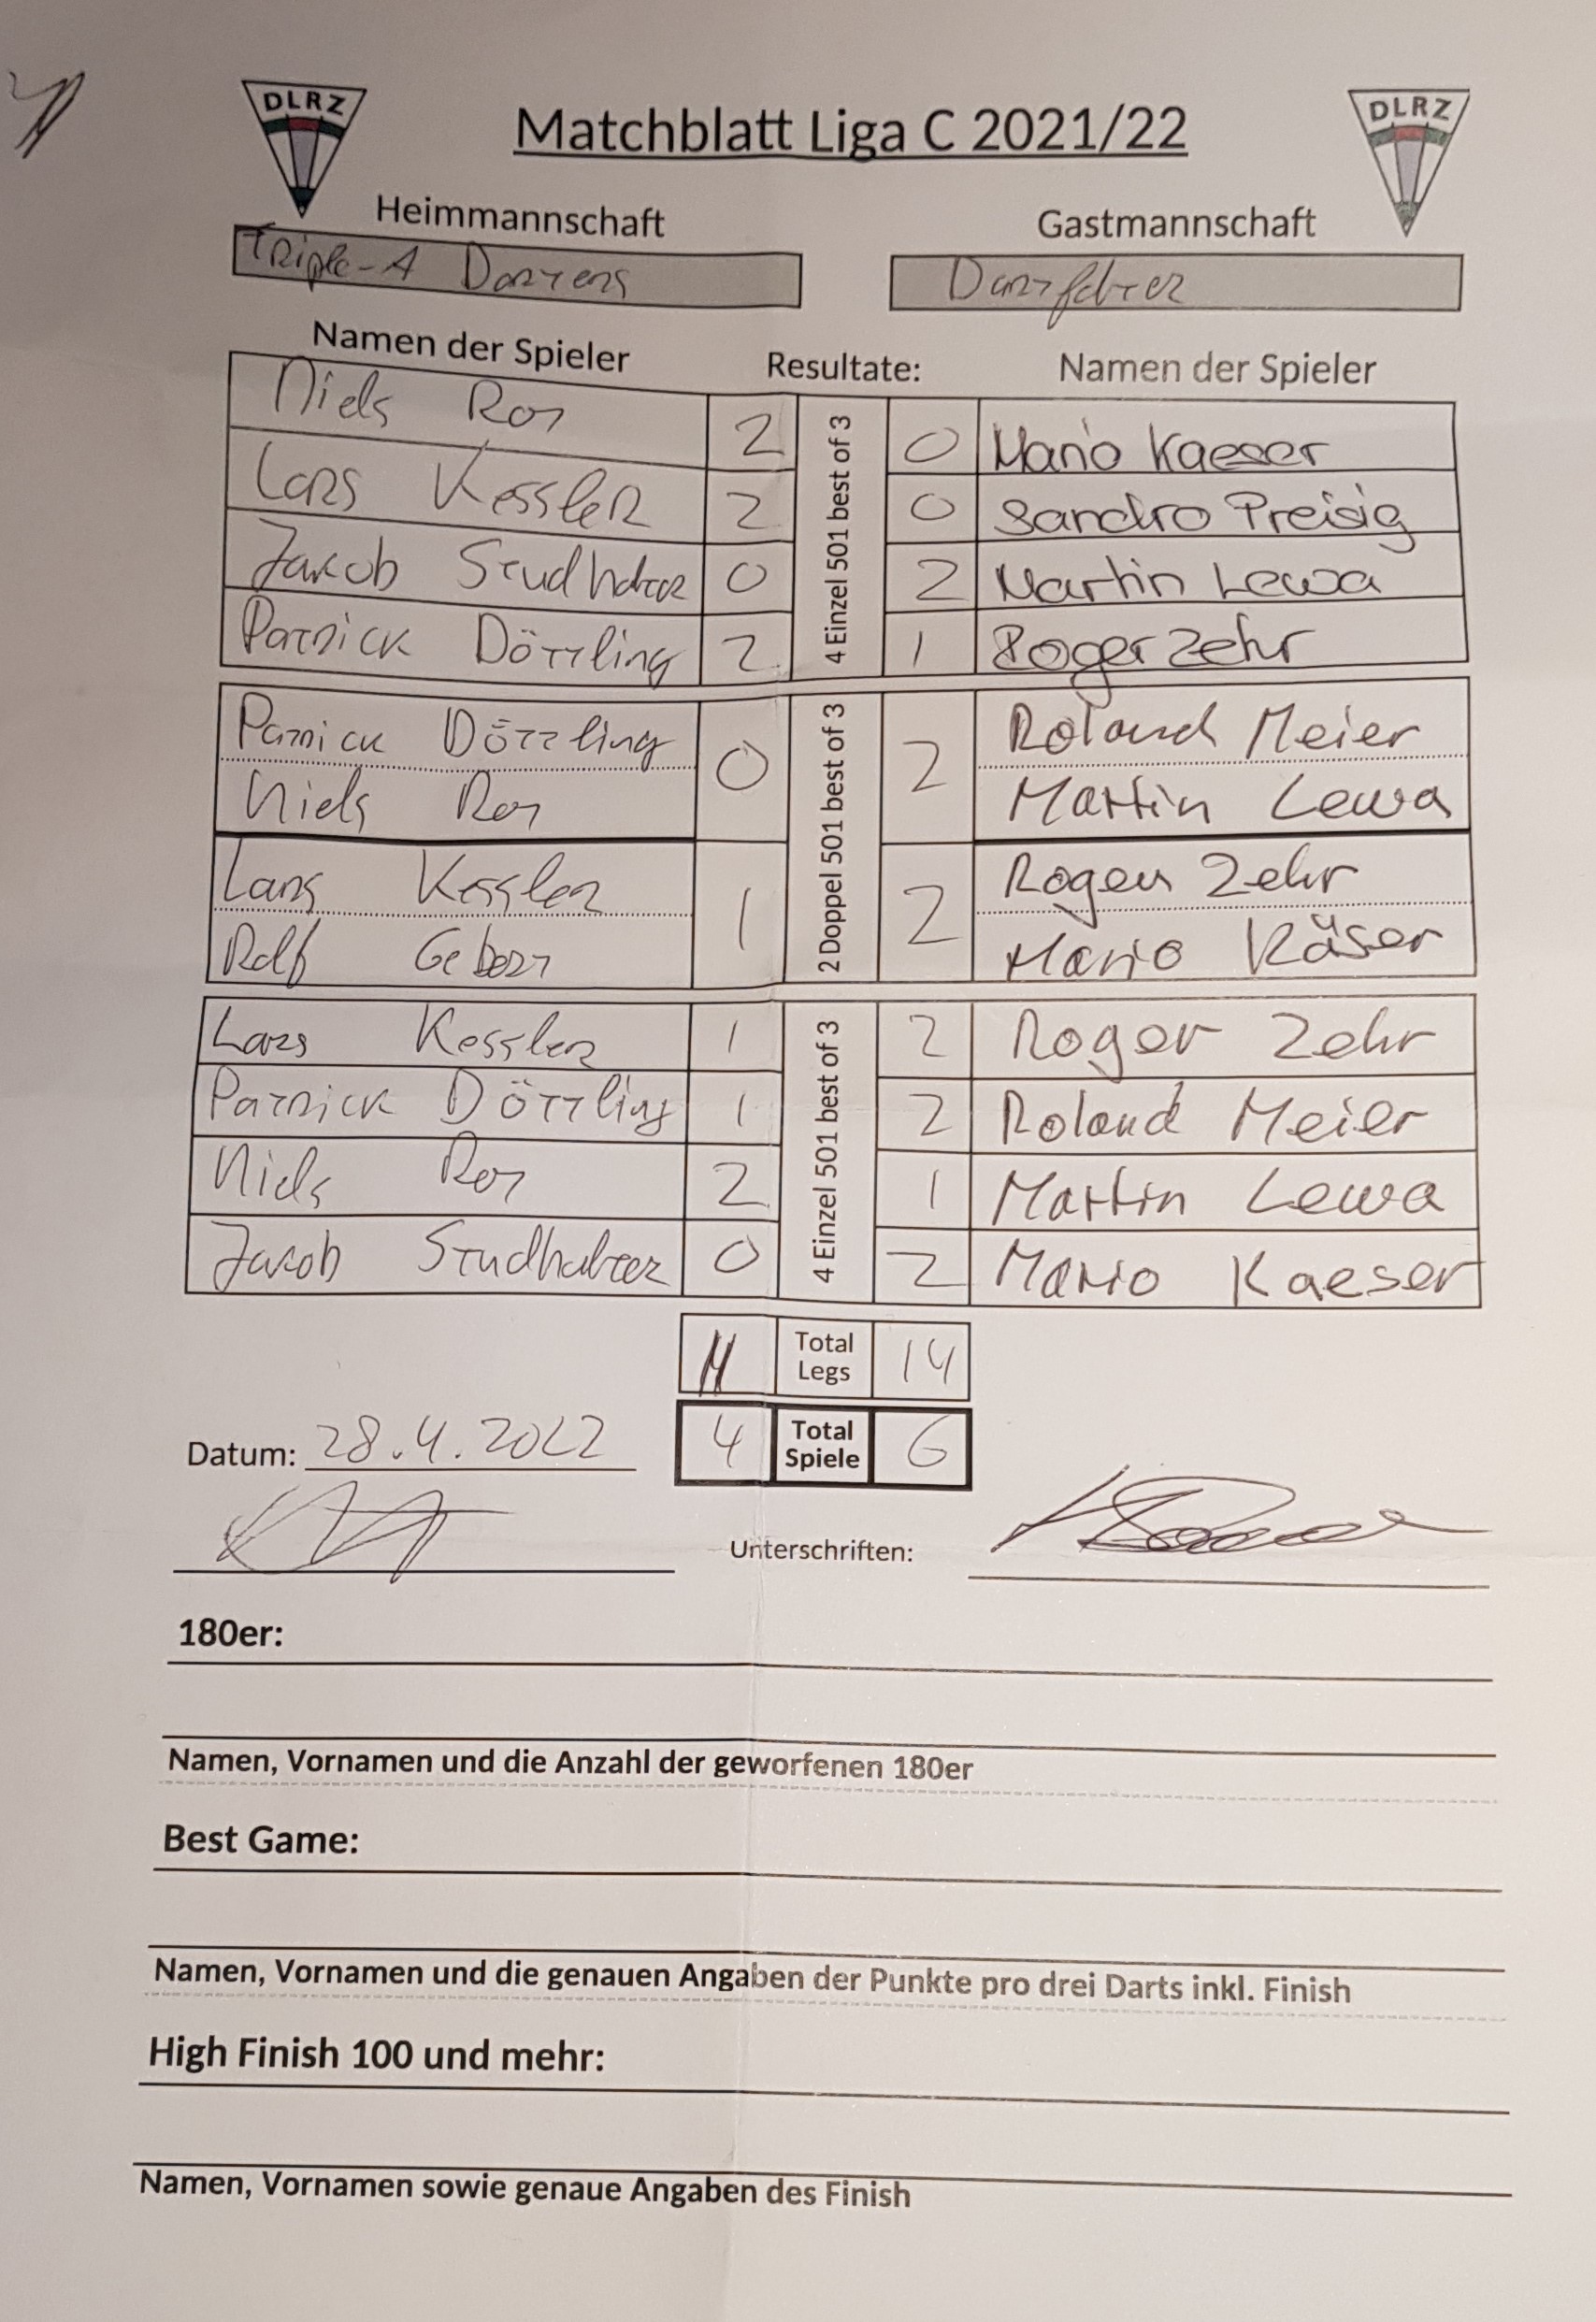 DLRZ
Matchblatt Liga C 2021/22
DLRZ
Heimmannschaft
Gastmannschaft
Triple-A Darters
Namen der Spieler
Resultate:
Namen der Spieler
Niels 2 0 Mario Kaeser
Lars Kessler 2 0 Sandro Preisig
Jakob Studhalter 0 2 Martin Lewa
Patrick Döttling 2 1 Roger Zehr
4 Einzel 501 best of 3
Patrick Döttling 0 2 Roland Meier
Niels Martin Lewa
Lars Kessler 1 2 Roger Zehr
Rolf Mario Käser
2 Doppel 501 best of 3
Lars Kessler 1 2 Roger Zehr
Patrick Döttling 1 2 Roland Meier
Niels 2 1 Martin Lewa
Jakob Studhalter 0 2 Mario Kaeser
4 Einzel 501 best of 3
11 Total Legs 14
4 Total Spiele 6
Datum: 28.4.2022
Unterschriften:
180er:
Namen, Vornamen und die Anzahl der geworfenen 180er
Best Game:
Namen, Vornamen und die genauen Angaben der Punkte pro drei Darts inkl. Finish
High Finish 100 und mehr:
Namen, Vornamen sowie genaue Angaben des Finish